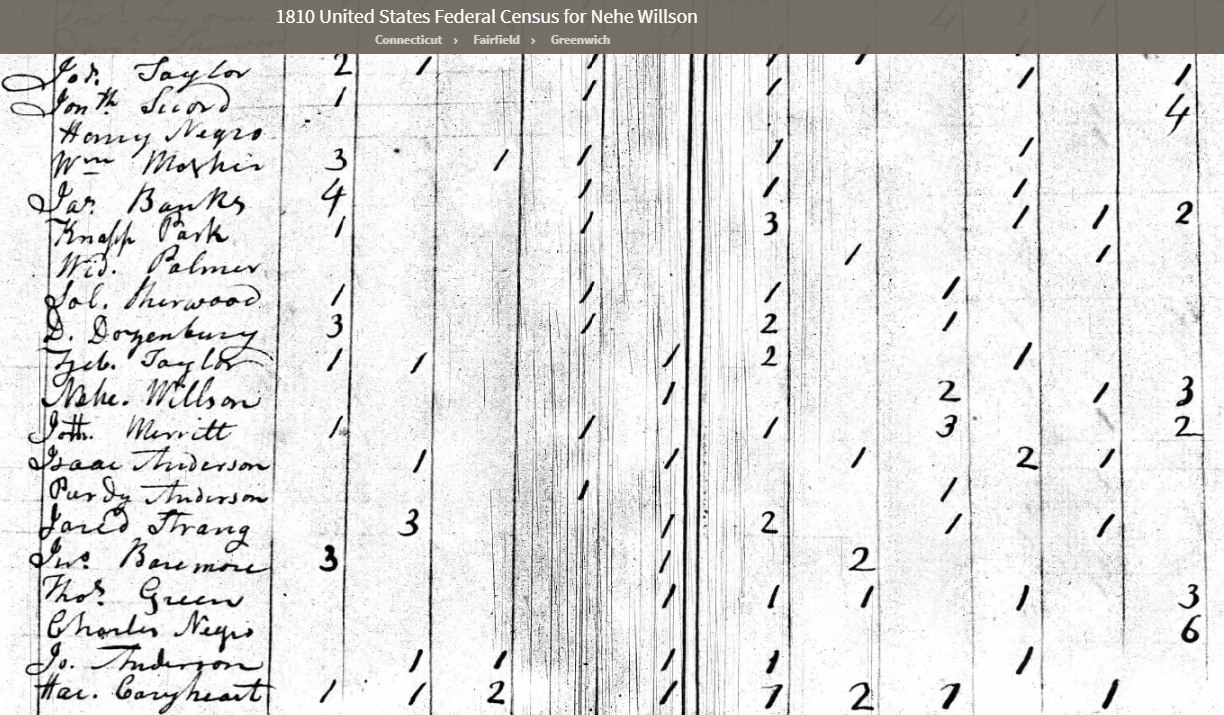 1810 United States Federal Census for Nehe Willson
Connecticut > Fairfield > Greenwich
Thos. Lyon 4 1 1
Danl. Sherwood
Jos. Taylor 2 1 1 1 1 1 1
Jonth. Secord 1 1 1 4
Henry Negro
Wm Mosher 3 1 1 1 1
Jas. Banks 4 1 1 1
Knapp Park 1 1 3 1 1 2
Wid. Palmer 1 1
Sol. Sherwood 1 1 1 1
D. Dogenbury 3 1 2 1
Zeb. Taylor 1 1 1 2 1
Nehe. Willson 1 2 1 3
Joth. Merritt 1 1 1 3 2
Isaac Anderson 1 1 1 2 1
Purdy Anderson 1 1
Jared Strang 3 1 2 1 1
Jno. Baremore 3 1 2
Thos. Green 1 1 1 1 3
Charles Negro 6
Jo. Anderson 1 1 1 1 1
Hac. 1 1 2 1 1 2 1 1